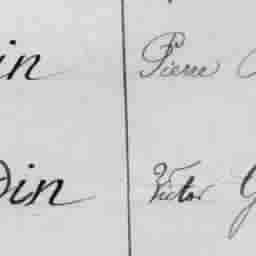 in Pierre
din Victor